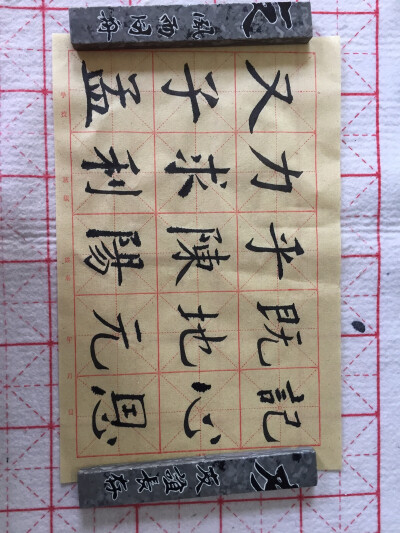 風雨同舟
又力乎既記
子求陳地心
孟利陽元恩
友誼長存